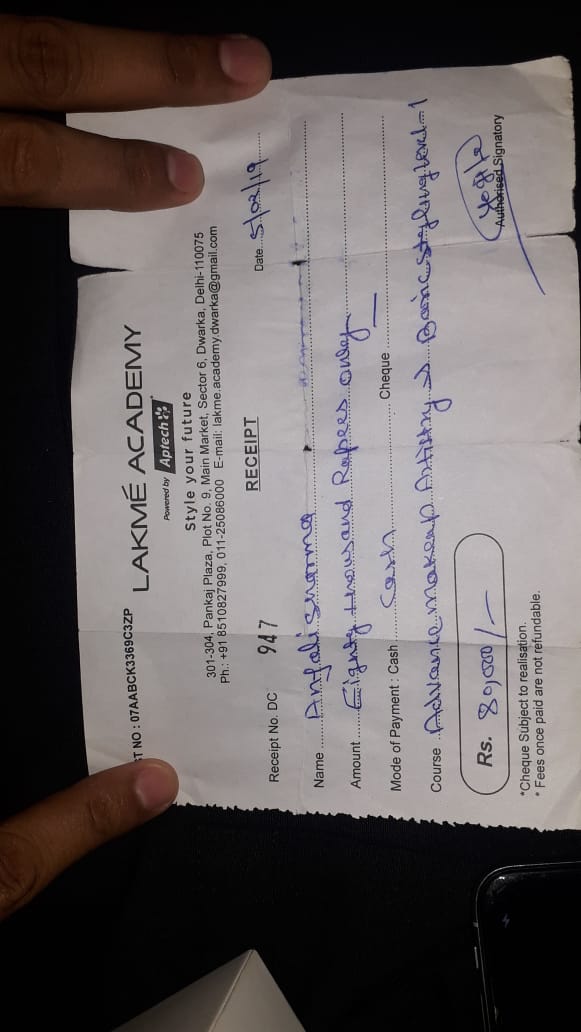 T NO : 07AABCK3369C3ZP
LAKMÉ ACADEMY
Powered by Aptech
Style your future
301-304, Pankaj Plaza, Plot No. 9, Main Market, Sector 6, Dwarka, Delhi-110075
Ph.: +91 8510827999, 011-25086000 E-mail: lakme.academy.dwarka@gmail.com
RECEIPT
Receipt No. DC 947 Date 5/02/19
Name Anjali Sharma
Amount Eighty thousand Rupees only
Mode of Payment : Cash Cash Cheque —
Course Advance Makeup Artistry → Basic Styling Level-1
Rs. 80,000/-
Authorised Signatory
*Cheque Subject to realisation.
* Fees once paid are not refundable.